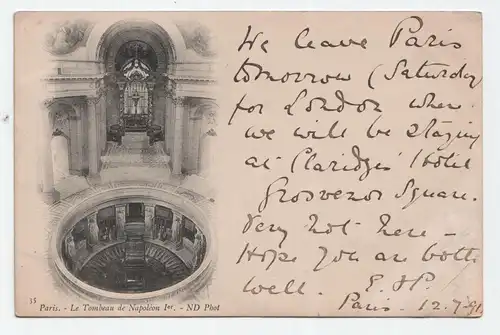 We leave Paris
tomorrow (Saturday
for London where
we will be staying
at Claridges Hotel
Grosvenor Square.
Very hot here -
Hope you are both
well. E. H P.
Paris. 12.7.
15
Paris. - Le Tombeau de Napoléon Ier. - ND Phot